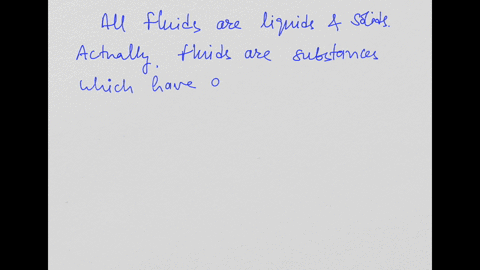 All fluids are liquids & solids.
Actually, fluids are substances
which have